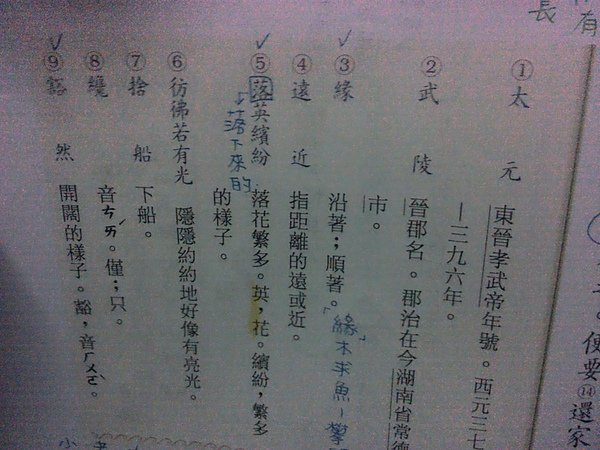 有
長
①太元 東晉孝武帝年號。西元三七
—三九六年。
②武陵 晉郡名。郡治在今湖南省常德
市。
③緣 沿著；順著。
「緣木求魚」
④遠近 指距離的遠或近。
⑤落英繽紛 落花繁多。英，花。繽紛，繁多
的樣子。
落下來的
⑥彷彿若有光 隱隱約約地好像有亮光。
⑦捨船 下船。
⑧纔 音ㄘㄞˊ。僅；只。
⑨豁然 開闊的樣子。豁，音ㄏㄨㄛˋ。
便要⑭還家